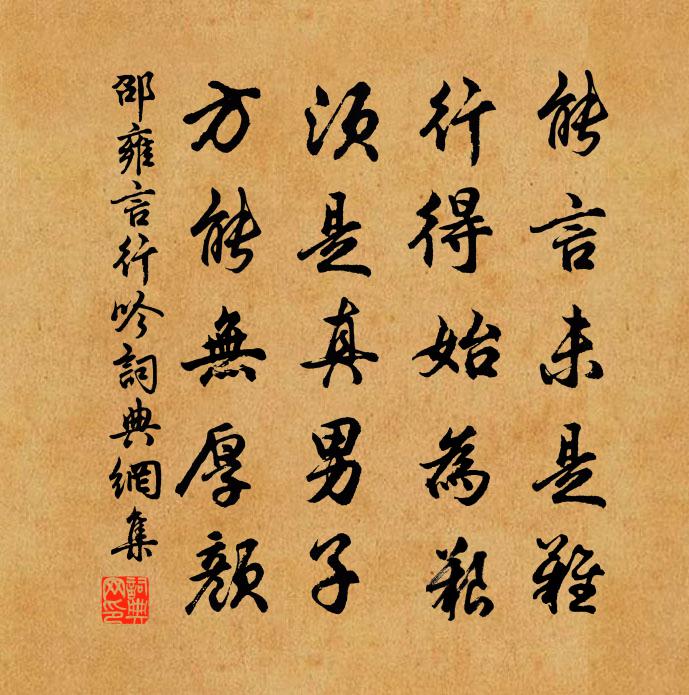 能言未是難
行得始為艱
須是真男子
方能無厚顏
邵雍言行吟詞典網集
詞典網印